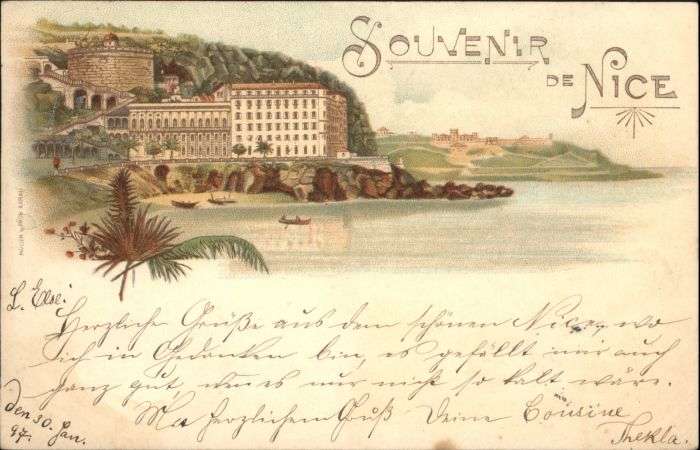 SOUVENIR
DE NICE
L. Else!
Herzliche Grüße aus dem schönen Nice, wo
ich in Gedanken bin, es gefällt mir auch
ganz gut, wenn es nur nicht so kalt wäre.
Mit herzlichem Gruß Deine Cousine
Thekla.
den 30. Jan.
97.